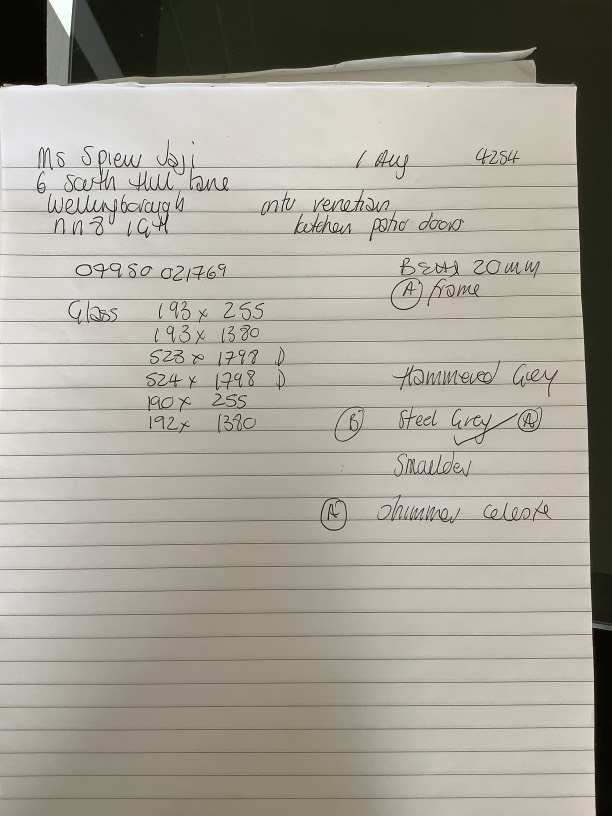 Ms Spiew Jaji 1 Aug 4254
6 South Hill Lane
Wellingborough intu venetian
NN8 1GH kitchen patio doors
07950 021769 20mm
(A) frame
Glass 193 x 255
193 x 1380
523 x 1798 D
524 x 1798 D Hammered Grey
190 x 255
192 x 1380 (B) Steel Grey ✓ (A)
Smoulder
(A) Shimmer Celeste